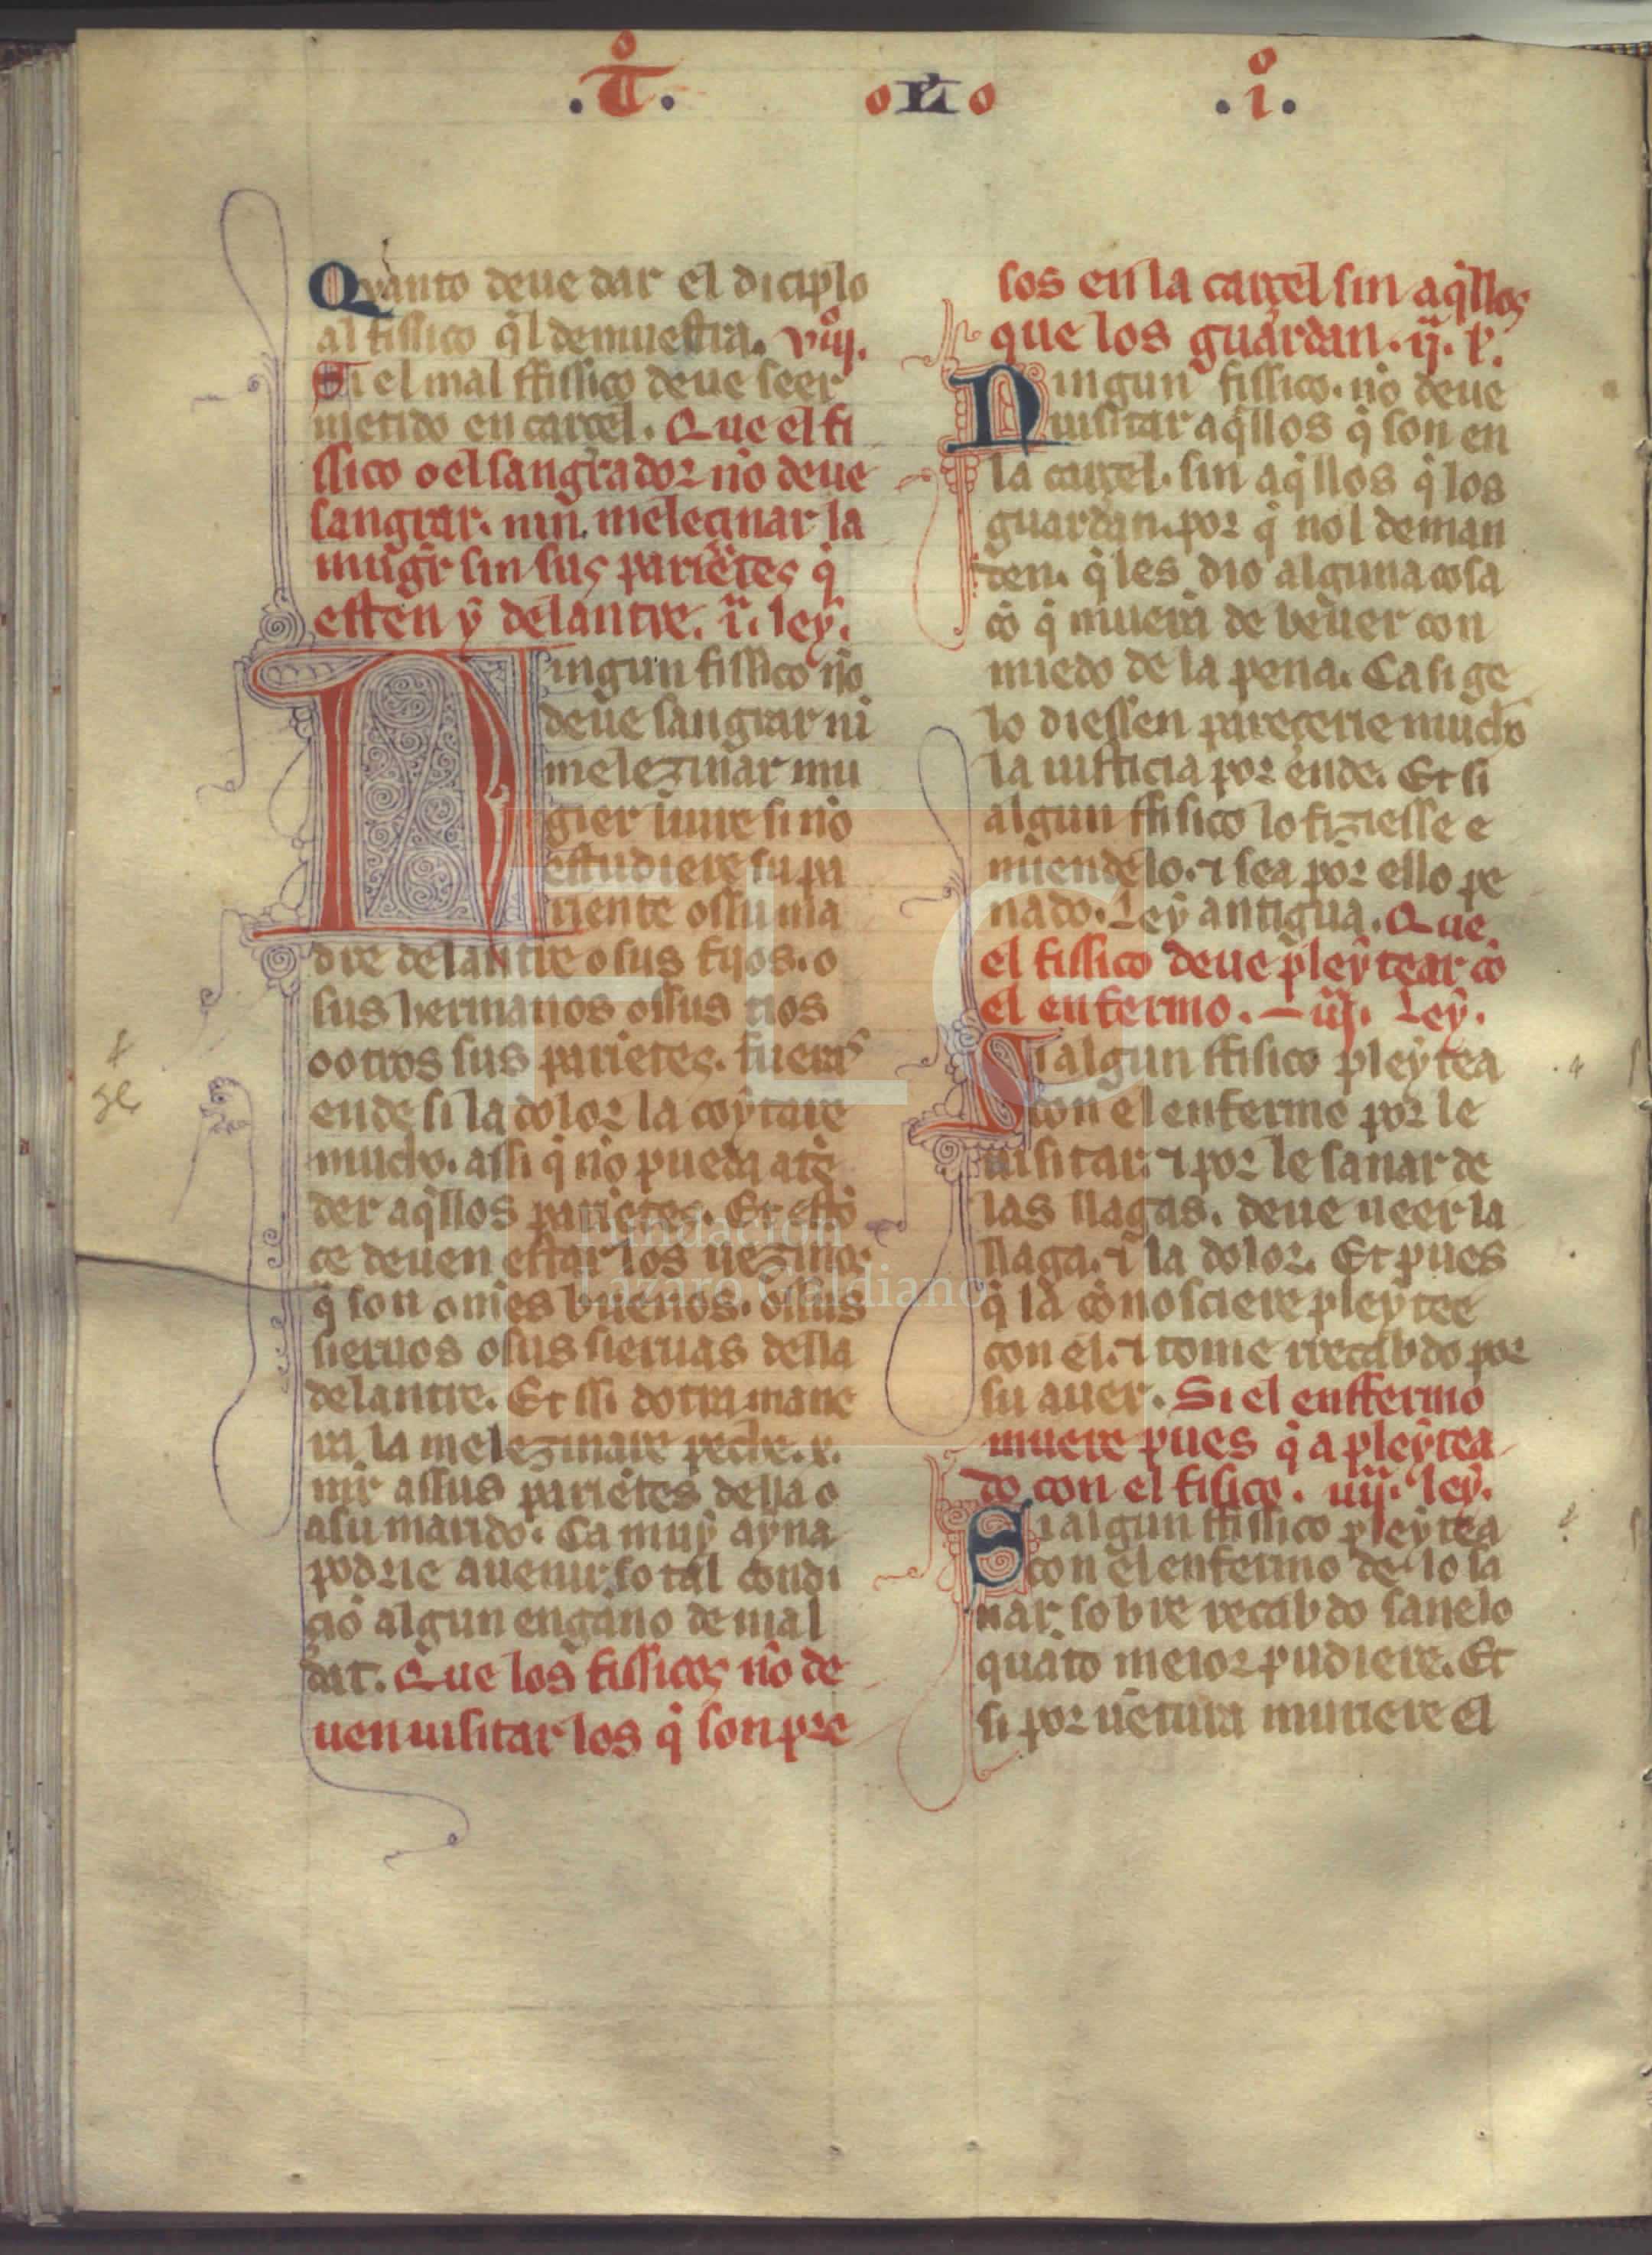 .T̊. oLo .i̊.
Quanto deue dar el diciplo
al fissico q̇l demuestra. viij̊.
Si el mal ffissico deue seer
metido en carçel. Que el fi
ssico o el sangrador nō deue
sangrar. nin meleçinar la
mugr̄ sin sus pariētes q̇
esten ȳ delantre. i. ley.
Ningun fissico nō
deue sangrar ni
melezinar mu
gier liure si nō
estudiere su pa
riente o ssu ma
dre delantre o sus fijos. o
sus hermanos o ssus tios
o otros sus pariētes. fueras
ende si la dolor la coytare
mucho. assi q̇ nō pueda atē
der aq̇llos pariētes. Et estō
çe deuen estar los uezinos
q̇ son omēs buenos. o ssus
sieruos o sus sieruas della
delantre. Et ssi dotra mane
ra la melezinare peche. x.
mr̄ assus pariētes della o
a su marido. Ca muy ayna
podrie auenir so tal condi
ciō algun engano de mal
dat. Que los fissicos nō de
uen uisitar los q̇ son pre
sos en la carçel sin aq̇llos
que los guardan. ij. l̄.
Ningun fissico. nō deue
uisitar aq̇llos q̇ son en
la carçel. sin aq̇llos q̇ los
guardan. por q̇ nol deman
den. q̇ les dio alguna cosa
cō q̇ muerā de beuer con
miedo de la pena. Ca si ge
lo diessen pareçerie mucho
la iusticia por ende. Et si
algun ffisico lo fiziesse e
miendelo. ⁊ sea por ello pe
nado. Ley antigua. Que
el fissico deue pleytear cō
el enfermo. iij. Ley.
Si algun ffisico pleytea
con el enfermo por le
uisitar. ⁊ por le sanar de
las llagas. deue ueer la
llaga. ⁊ la dolor. Et pues
q̇ la cōnosciere pleytee
con el. ⁊ tome rrecabdo por
su auer. Si el enffermo
muere pues q̇ a pleytea
do con el fisico. iiij. ley.
Si algun ffissico pleytea
con el enfermo de lo sa
nar sobre recabdo sanelo
quāto meior pudiere. Et
si por uētura muriere el
FLG
Fundación
Lázaro Galdiano